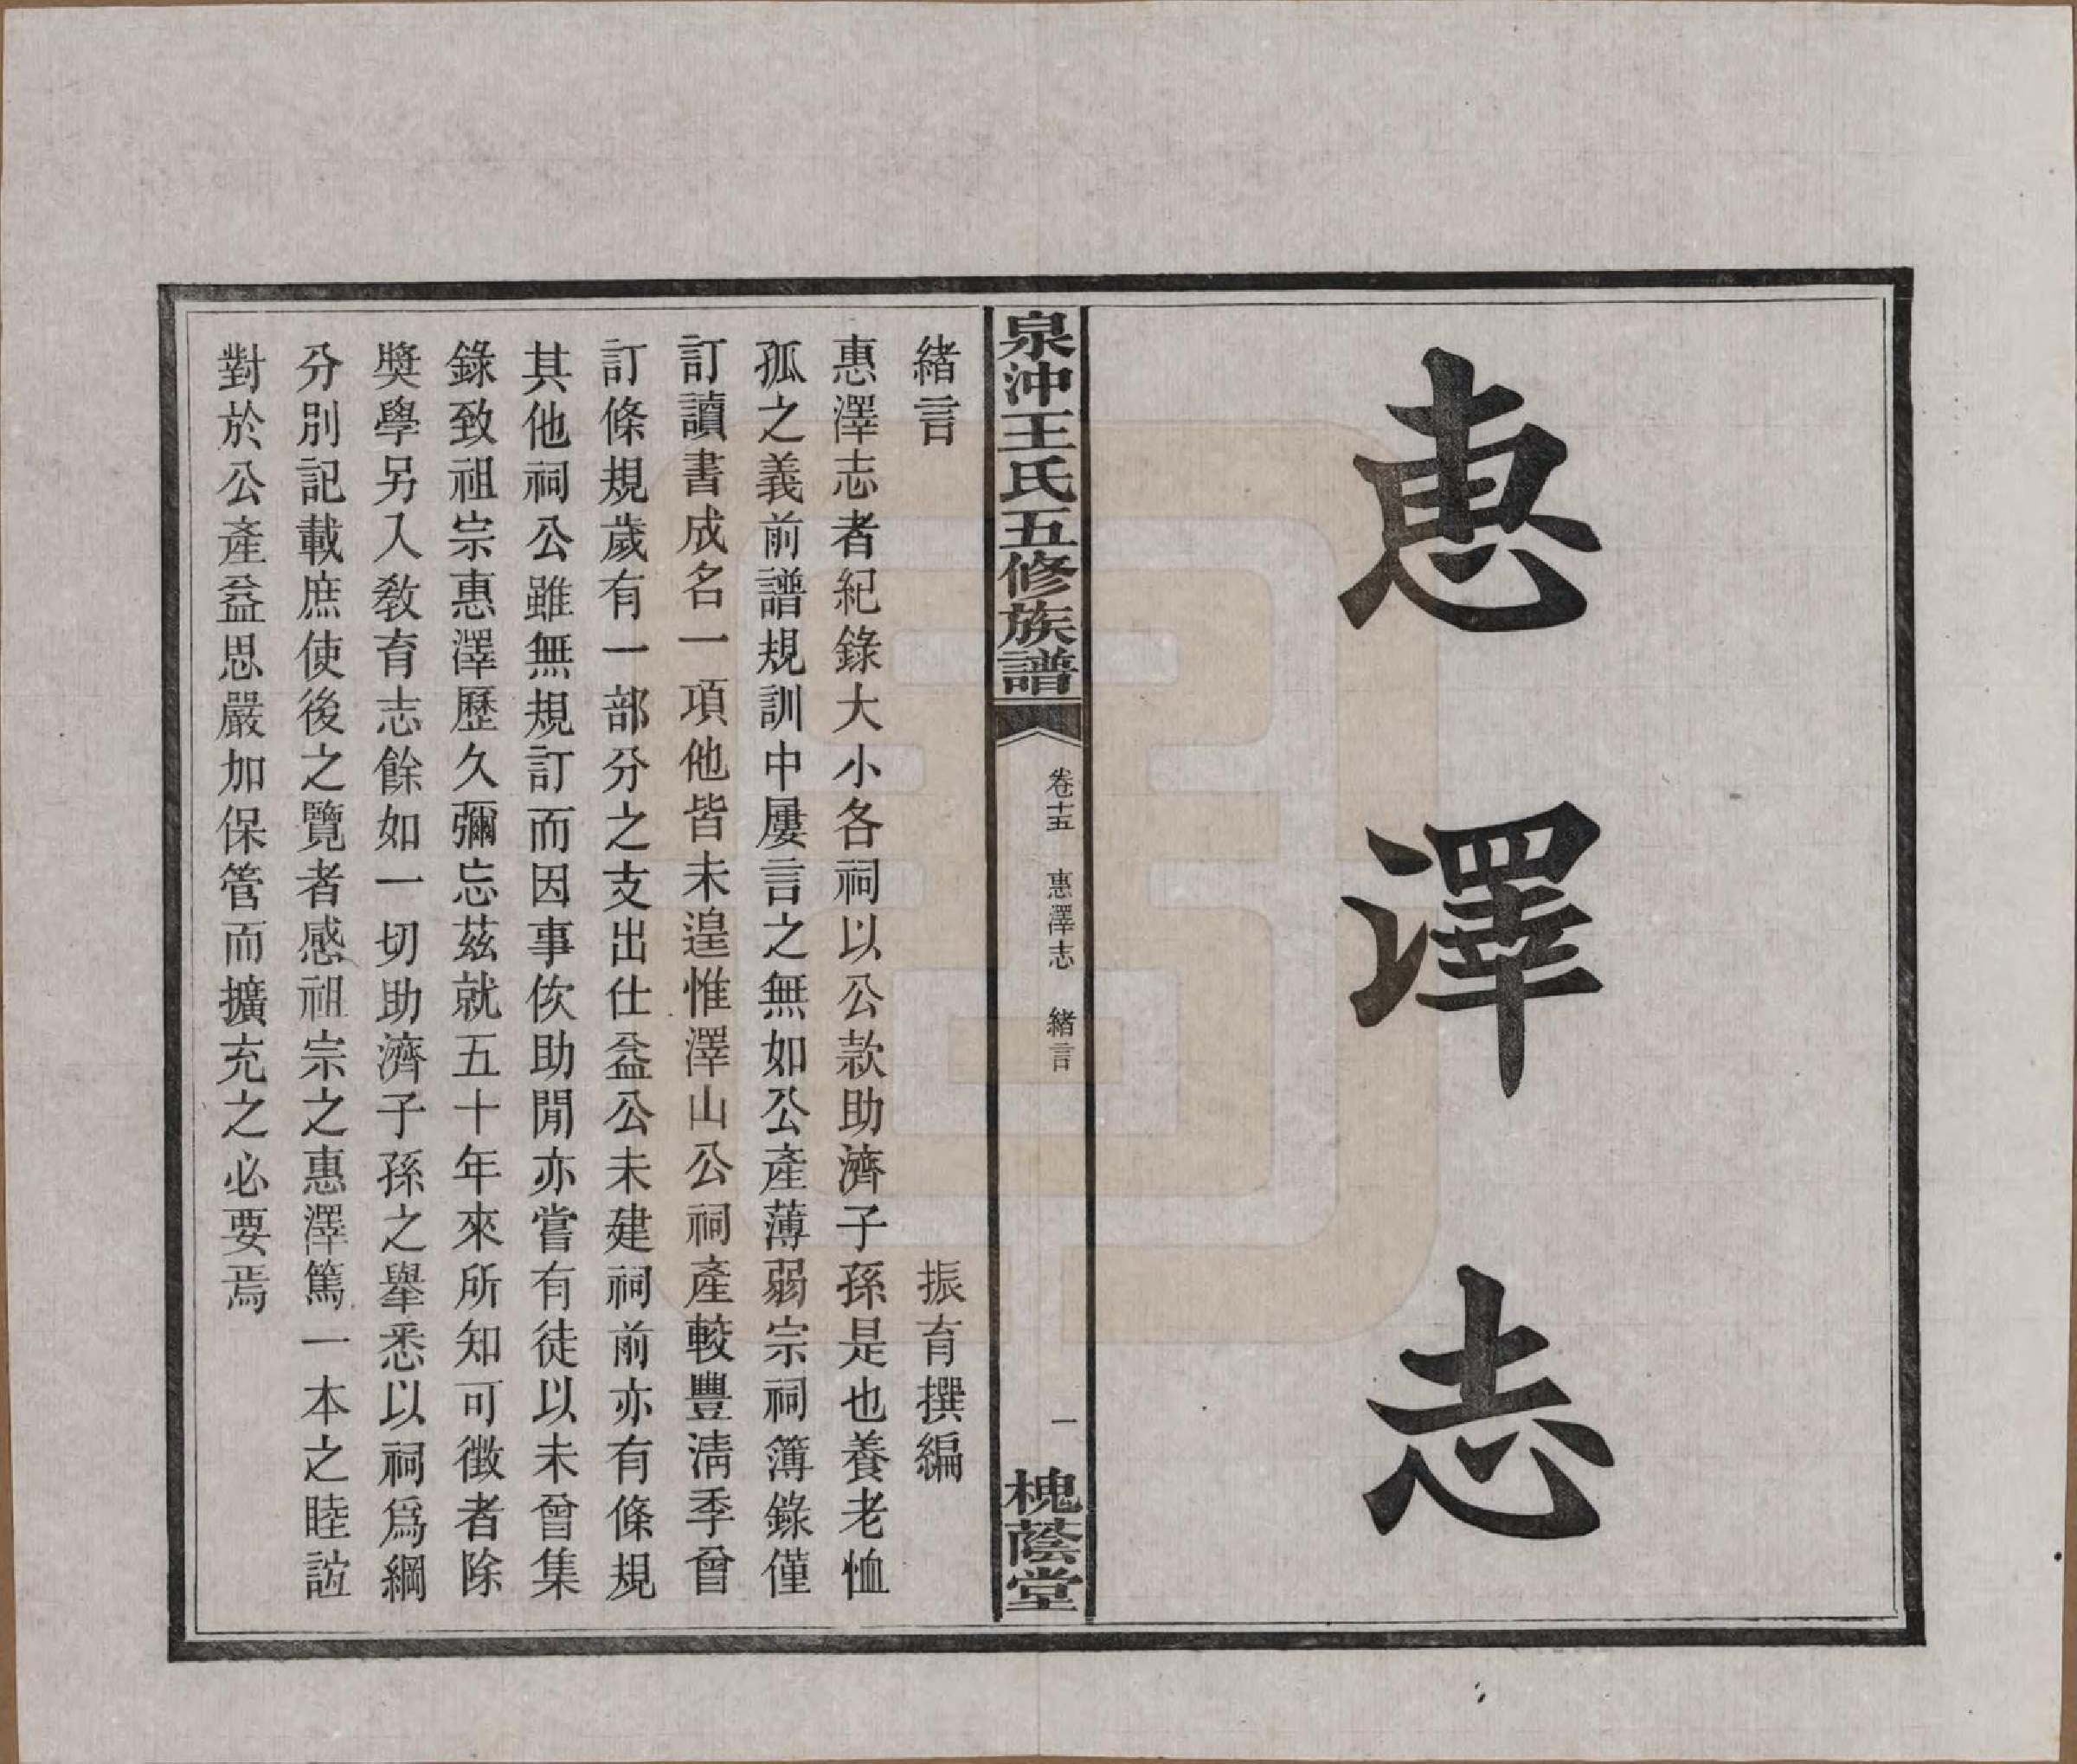 惠澤志
泉沖王氏五修族譜
卷十五　惠澤志　緒言
一
槐蔭堂
緒言
振育撰編
惠澤志者紀錄大小各祠以公款助濟子孫是也養老恤
孤之義前譜規訓中屢言之無如公產薄弱宗祠簿錄僅
訂讀書成名一項他皆未遑惟澤山公祠產較豐淸季曾
訂條規歲有一部分之支出仕益公未建祠前亦有條規
其他祠公雖無規訂而因事佽助閒亦嘗有徒以未曾集
錄致祖宗惠澤歷久彌忘茲就五十年來所知可徵者除
獎學另入敎育志餘如一切助濟子孫之舉悉以祠爲綱
分別記載庶使後之覽者感祖宗之惠澤篤一本之睦誼
對於公產益思嚴加保管而擴充之必要焉